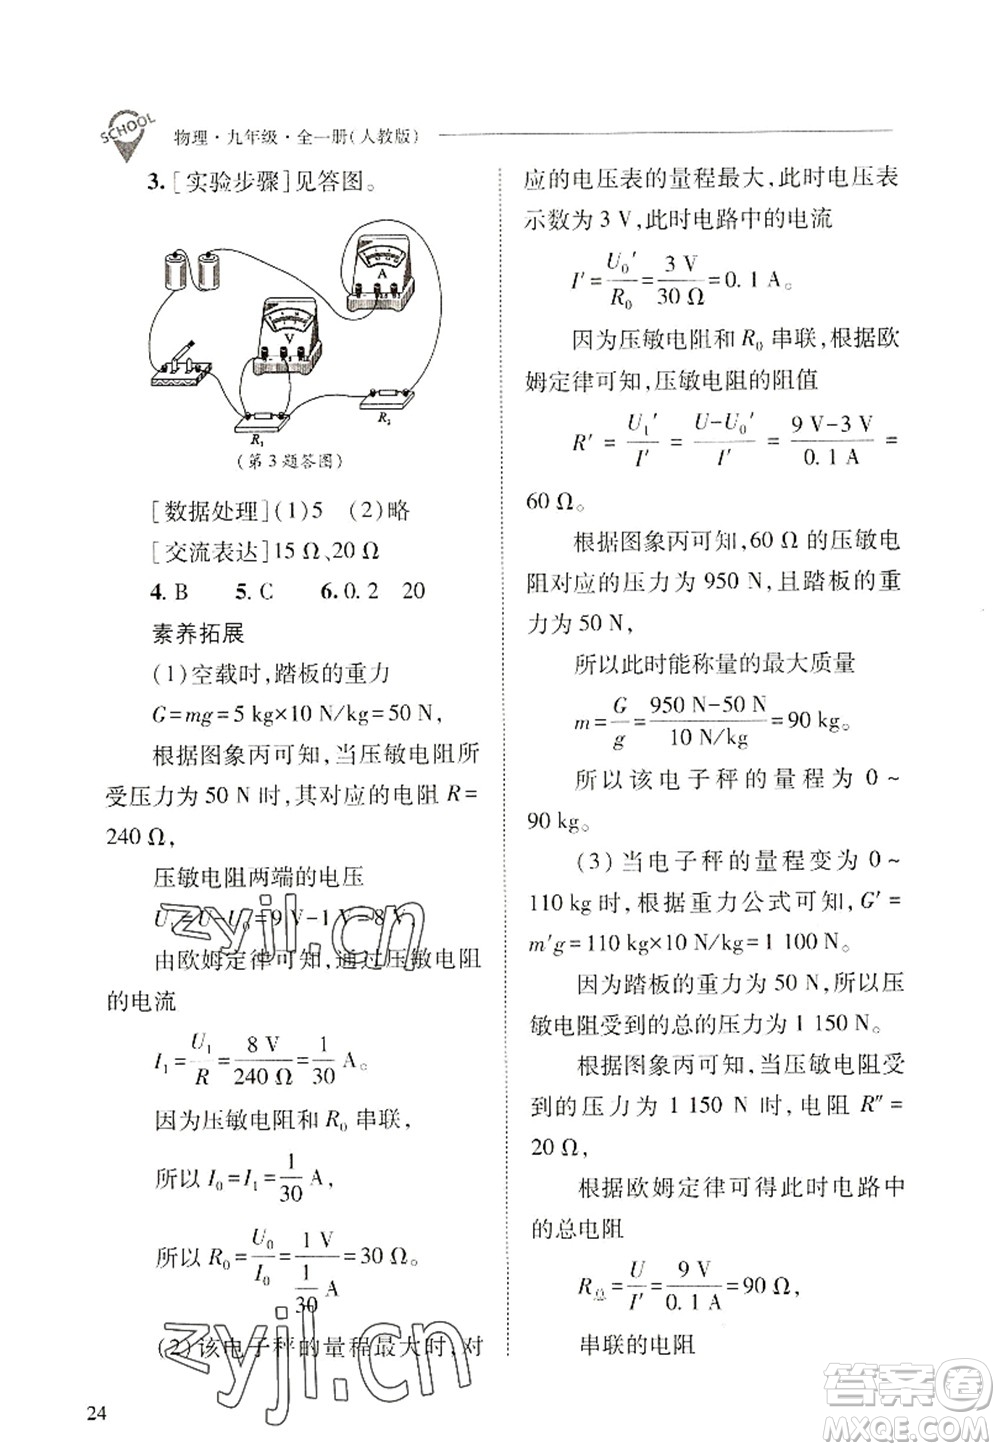 SCHOOL
物理·九年级·全一册(人教版)
3. [实验步骤]见答图。
A
V
R₁
R₂
(第3题答图)
[数据处理](1)5 (2)略
[交流表达]15 Ω、20 Ω
4. B 5. C 6. 0. 2 20
素养拓展
(1)空载时,踏板的重力
G=mg=5 kg×10 N/kg=50 N,
根据图象丙可知,当压敏电阻所
受压力为 50 N 时,其对应的电阻 R=
240 Ω,
压敏电阻两端的电压
U₁=U-U₀=9 V-1 V=8 V
由欧姆定律可知,通过压敏电阻
的电流
I₁=U₁/R=8 V/240 Ω=1/30 A。
因为压敏电阻和 R₀ 串联,
所以 I₀=I₁=1/30 A,
所以 R₀=U₀/I₀=1 V/(1/30 A)=30 Ω。
(2)该电子秤的量程最大时,对
24
应的电压表的量程最大,此时电压表
示数为 3 V,此时电路中的电流
I′=U₀′/R₀=3 V/30 Ω=0. 1 A。
因为压敏电阻和 R₀ 串联,根据欧
姆定律可知,压敏电阻的阻值
R′=U₁′/I′=(U-U₀′)/I′=(9 V-3 V)/0. 1 A=
60 Ω。
根据图象丙可知,60 Ω 的压敏电
阻对应的压力为 950 N,且踏板的重
力为 50 N,
所以此时能称量的最大质量
m=G/g=(950 N-50 N)/(10 N/kg)=90 kg。
所以该电子秤的量程为 0～
90 kg。
(3)当电子秤的量程变为 0～
110 kg 时,根据重力公式可知,G′=
m′g=110 kg×10 N/kg=1 100 N。
因为踏板的重力为 50 N,所以压
敏电阻受到的总的压力为 1 150 N。
根据图象丙可知,当压敏电阻受
到的压力为 1 150 N 时,电阻 R″=
20 Ω,
根据欧姆定律可得此时电路中
的总电阻
R总=U/I′=9 V/0. 1 A=90 Ω,
串联的电阻
zyjl.cn
zyjl.cn
答案圈
MXQE.COM